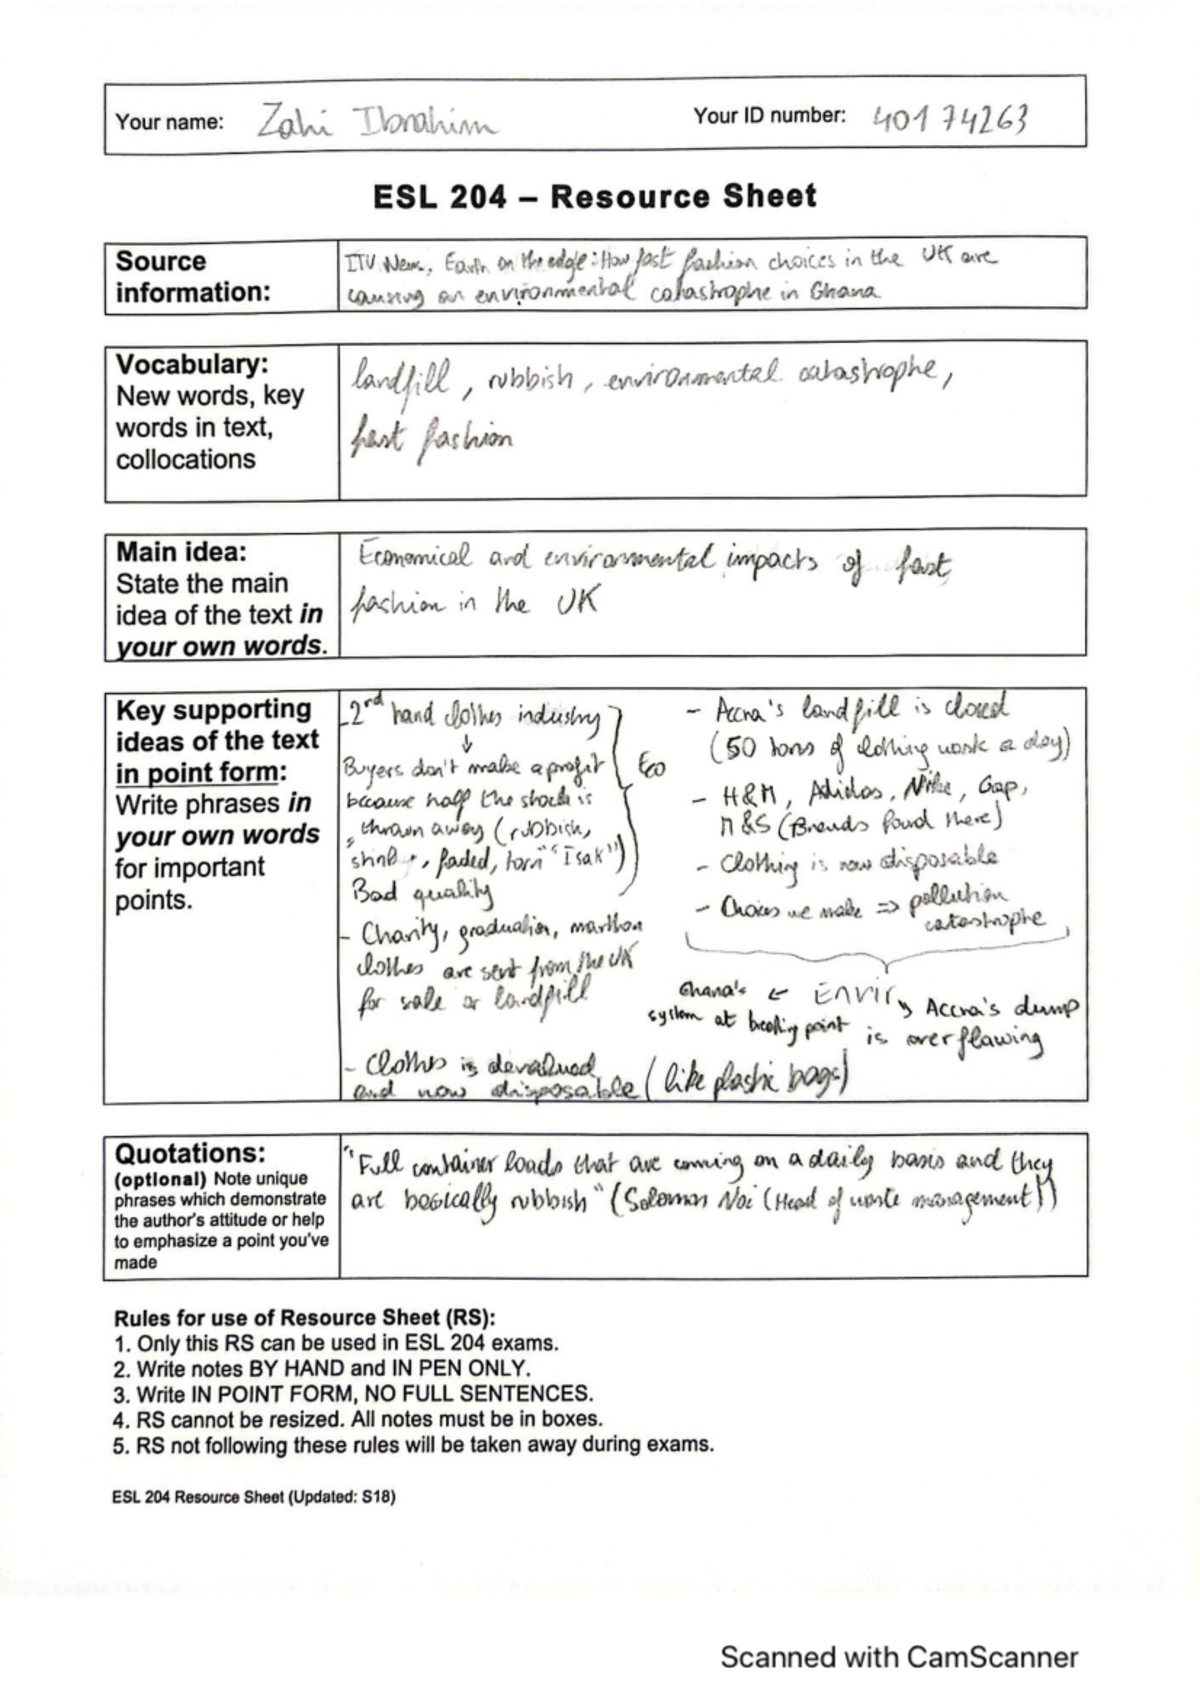 Your name: Zahi Ibrahim
Your ID number: 40174263
ESL 204 – Resource Sheet
Source
information:
ITV News, Earth on the edge: How fast fashion choices in the UK are
causing an environmental catastrophe in Ghana
Vocabulary:
New words, key
words in text,
collocations
landfill, rubbish, environmental catastrophe,
fast fashion
Main idea:
State the main
idea of the text in
your own words.
Economical and environmental impacts of fast
fashion in the UK
Key supporting
ideas of the text
in point form:
Write phrases in
your own words
for important
points.
- 2nd hand clothes industry
↓
Buyers don't make a profit
because half the stock is
thrown away (rubbish,
faded, torn "Isak")
Bad quality
Eco
- Charity, graduation, marthon
clothes are sent from the UK
for sale or landfill
- Clothes is devalued
and now disposable (like plastic bags)
- Accra's landfill is closed
(50 tons of clothing a day)
- H&M, Adidas, Nike, Gap,
M&S (Brands found there)
- Clothing is now disposable
- Choices we make => pollution
catastrophe
Ghana's ← ENVIR ↘ Accra's dump
system at breaking point is overflawing
Quotations:
(optional) Note unique
phrases which demonstrate
the author's attitude or help
to emphasize a point you've
made
"Full container loads that are coming on a daily basis and they
are basically rubbish" (Solomon Noi (Head of waste management))
Rules for use of Resource Sheet (RS):
1. Only this RS can be used in ESL 204 exams.
2. Write notes BY HAND and IN PEN ONLY.
3. Write IN POINT FORM, NO FULL SENTENCES.
4. RS cannot be resized. All notes must be in boxes.
5. RS not following these rules will be taken away during exams.
ESL 204 Resource Sheet (Updated: S18)
Scanned with CamScanner